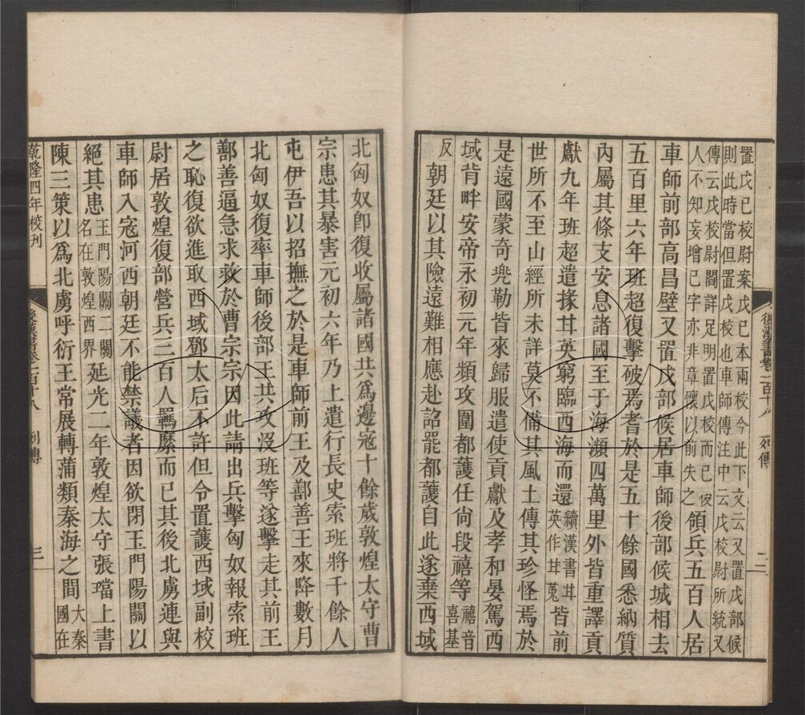 置戊已校尉案戊已本兩校今此下文云又置戊部候
則此時當但置戊校也車師傅注中云戊校尉所統又
傳云戊校尉閻詳足明置戊校而已後
人不知妄增已字亦非章懷以前失之領兵五百人居
車師前部高昌壁又置戊部候居車師後部候城相去
五百里六年班超復擊破焉耆於是五十餘國悉納質
內屬其條支安息諸國至于海瀕四萬里外皆重譯貢
獻九年班超遣掾甘英窮臨西海而還續漢書甘英作甘菟皆前
世所不至山經所未詳莫不備其風土傳其珍怪焉於
是遠國蒙奇兜勒皆來歸服遣使貢獻及孝和晏駕西
域背畔安帝永初元年頻攻圍都護任尚段禧等禧音喜基
反朝廷以其險遠難相應赴詔罷都護自此遂棄西域
後漢書卷一百十八 列傳 二
北匈奴卽復收屬諸國共爲邊寇十餘歲敦煌太守曹
宗患其暴害元初六年乃上遣行長史索班將千餘人
屯伊吾以招撫之於是車師前王及鄯善王來降數月
北匈奴復率車師後部王共攻沒班等遂擊走其前王
鄯善逼急求救於曹宗宗因此請出兵擊匈奴報索班
之恥復欲進取西域鄧太后不許但令置護西域副校
尉居敦煌復部營兵三百人羈縻而已其後北虜連與
車師入寇河西朝廷不能禁議者因欲閉玉門陽關以
絕其患玉門陽關二關名在敦煌西界延光二年敦煌太守張璫上書
陳三策以爲北虜呼衍王常展轉蒲類秦海之間大秦國在
乾隆四年校刊 後漢書卷一百十八 列傳 三